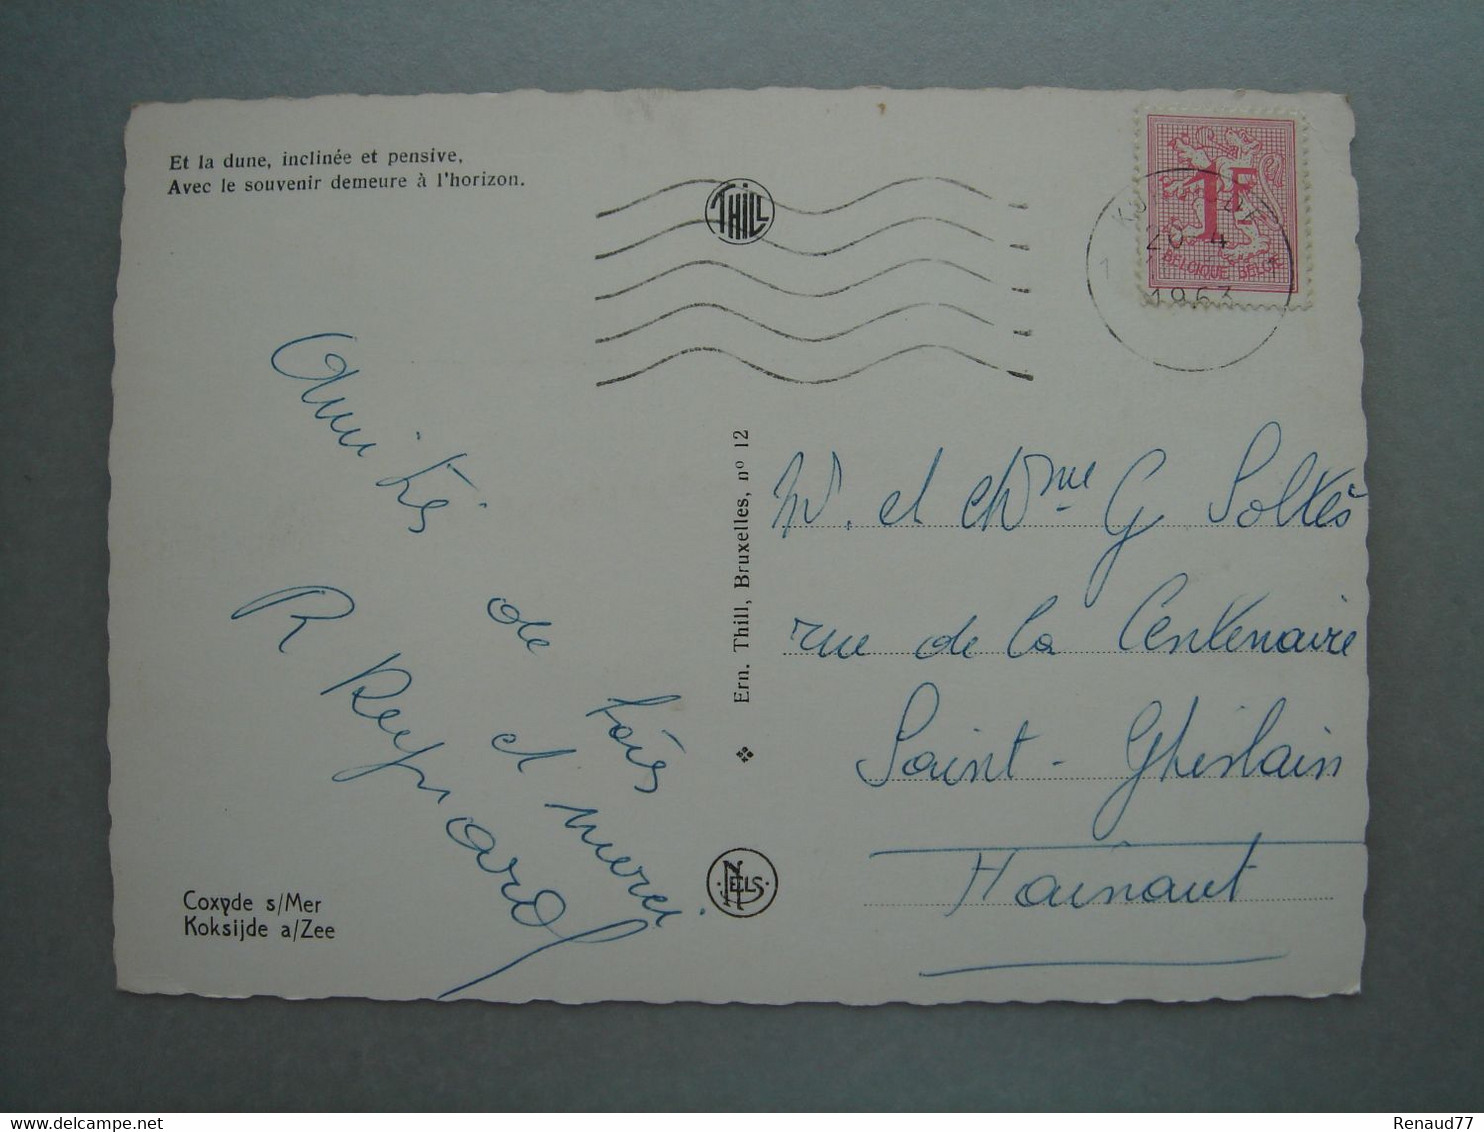 Et la dune, inclinée et pensive,
Avec le souvenir demeure à l'horizon.
THILL
1F
BELGIQUE BELGIE
20-4
1963
Amitiés de tous
et merci.
R Reynard
Ern. Thill, Bruxelles, nº 12
NELS
Mr. et Mme G
rue de la Centenaire
Saint-Ghislain
Hainaut
Coxyde s/Mer
Koksijde a/Zee
Renaud77